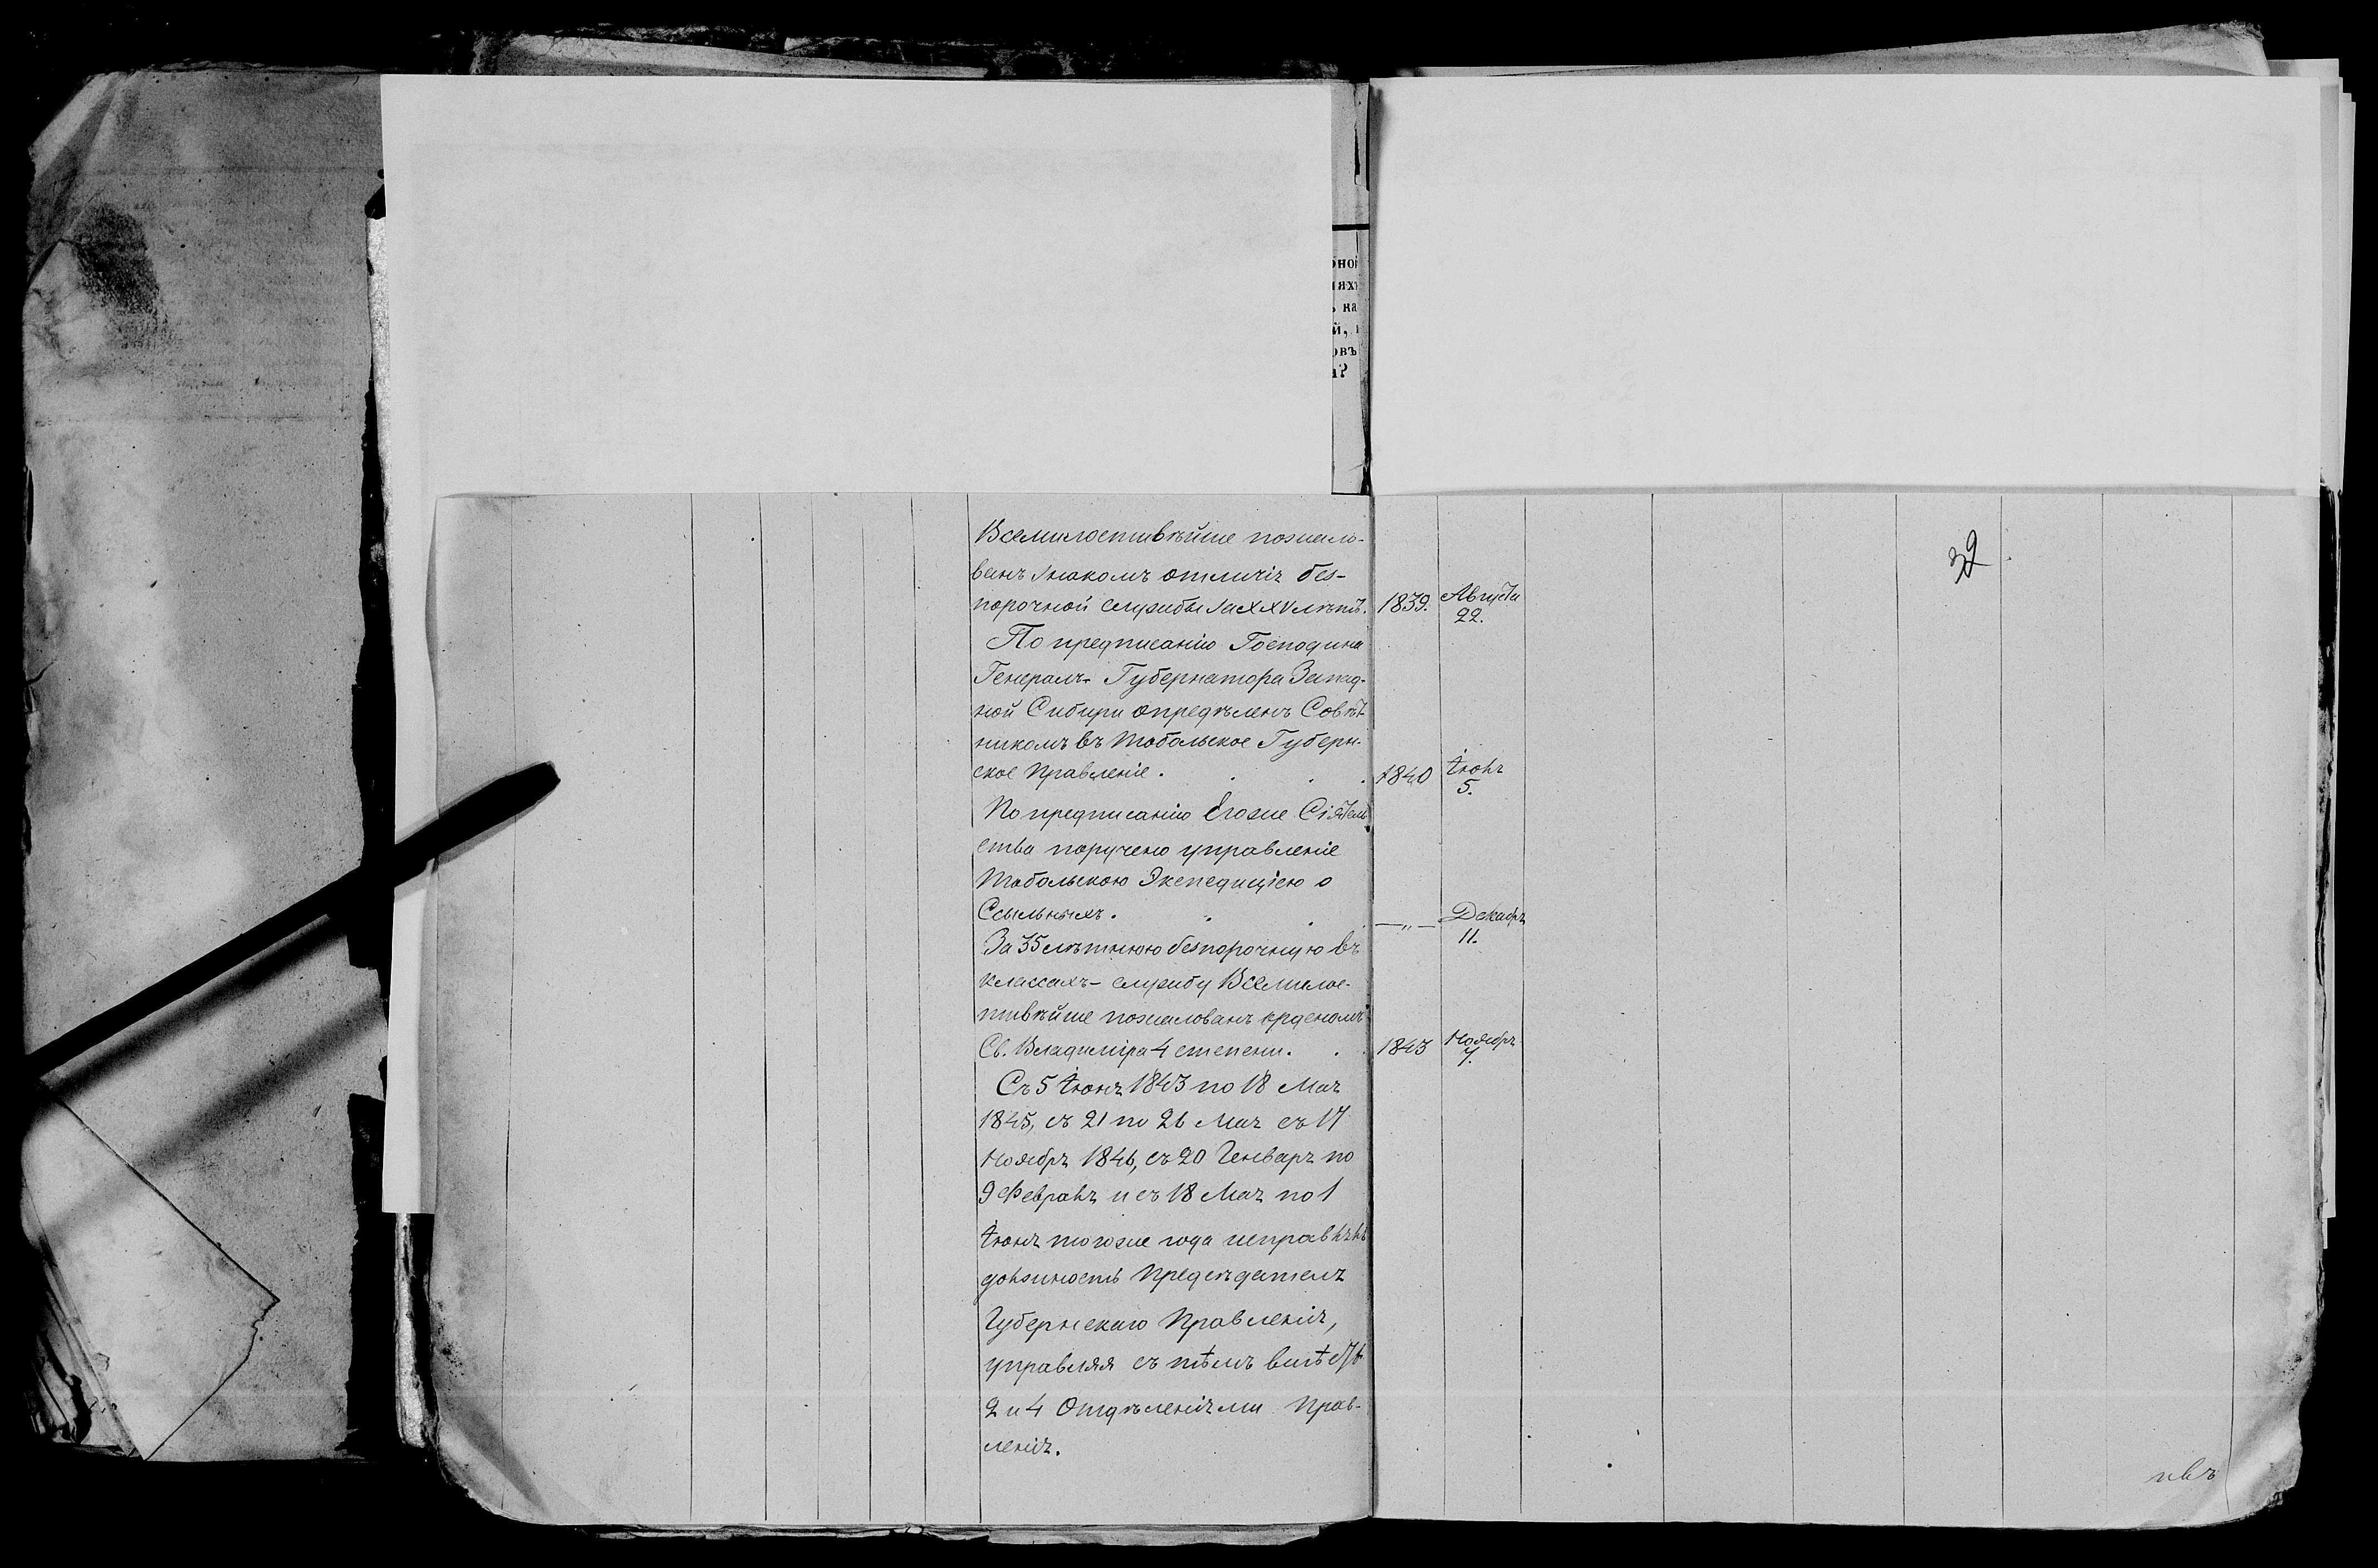 ной
яхъ
на
й,
овъ
а?
32
Всемилостивѣйше пожало-
ванъ знакомъ отличія без-
порочной службы за XXV лѣтъ. 1839. Августа 22.
По предписанію Господина
Генералъ-Губернатора Запад-
ной Сибири опредѣленъ Совѣт-
никомъ въ Тобольское Губерн-
ское Правленіе. 1840 Іюня 5.
По предписанію Егоже Сіятель
ства поручено управленіе
Тобольскою Экспедиціею о
Ссыльныхъ. —„— Декабря 11.
За 35 лѣтнюю безпорочную въ
классахъ - службу Всемилос-
тивѣйше пожалованъ орденомъ
Св. Владиміра 4 степени. 1843 Ноября 7.
Съ 5 Іюня 1843 по 18 Мая
1845, съ 21 по 26 Мая съ 17
Ноября 1846, съ 20 Генваря по
9 Февраля и съ 18 Мая по 1
Іюня тогоже года исправлялъ
должность Предсѣдателя
Губернскаго Правленія,
управляя съ тѣмъ вмѣстѣ
2 и 4 Отдѣленіями Прав-
ленія.